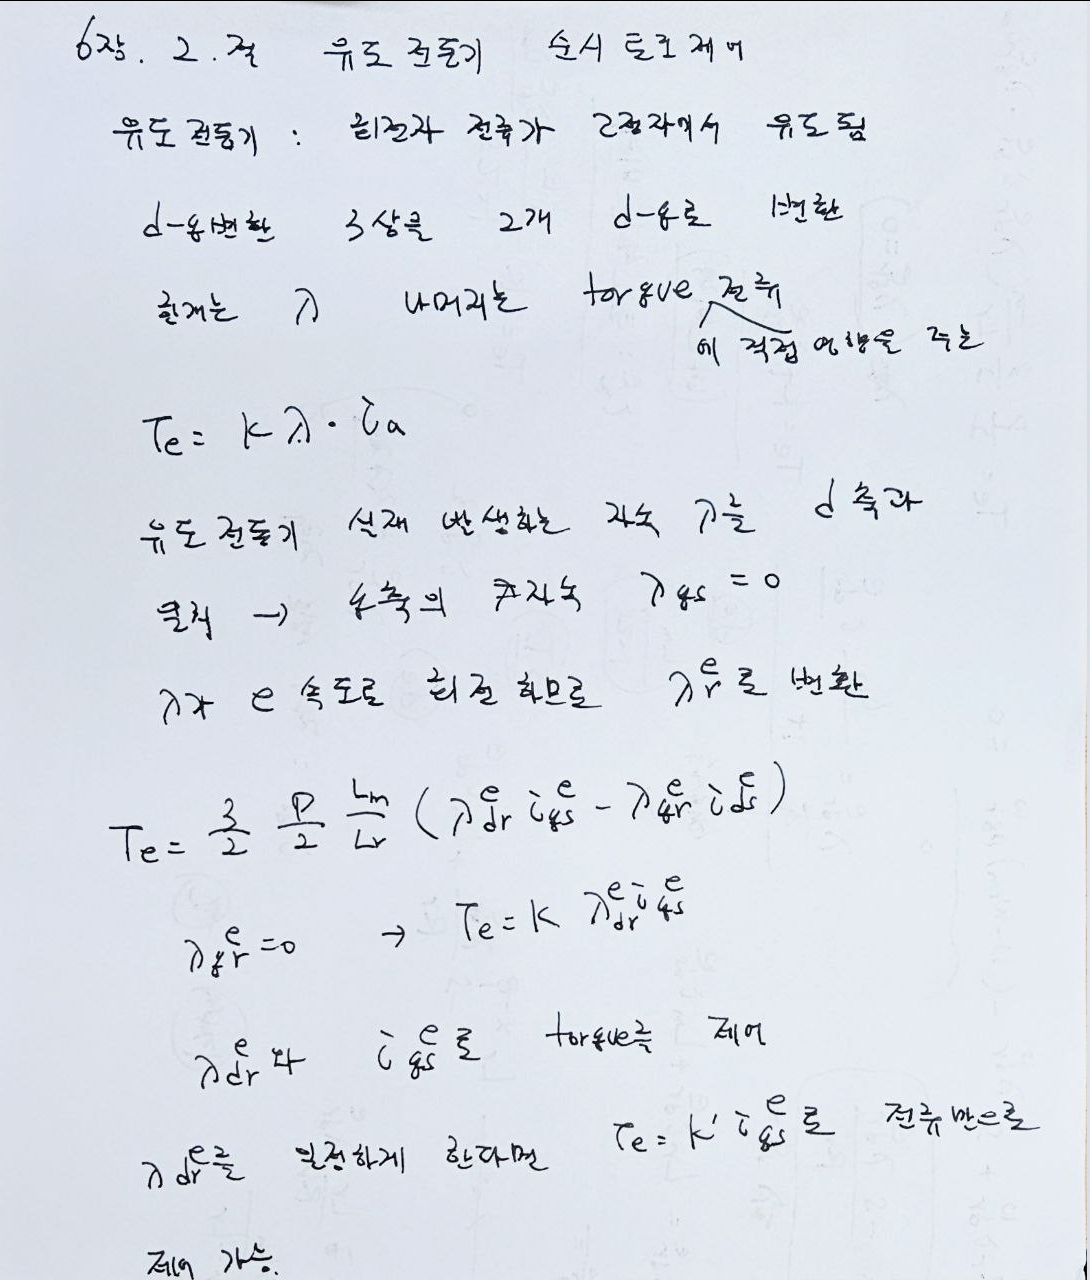 6장. 2. 절 유도 전동기 순시 토크 제어
유도 전동기 : 회전자 전류가 고정자에서 유도됨
d-q변환 3상을 2개 d-q로 변환
한개는 λ 나머지는 torque 전류
에 직접 영향을 주는
Te = k λ · ia
유도 전동기 실제 발생하는 자속 λ를 d 축과
일치 → q축의 자속 λqs = 0
λ가 e 속도로 회전 하므로 λ_r^e로 변환
Te = 3/2 P/2 Lm/Lr (λ_dr^e i_qs^e - λ_qr^e i_ds^e)
λ_qr^e = 0 → Te = K λ_dr^e i_qs^e
λ_dr^e 와 i_qs^e로 torque를 제어
λ_dr^e를 일정하게 한다면 Te = k' i_qs^e로 전류만으로
제어 가능.